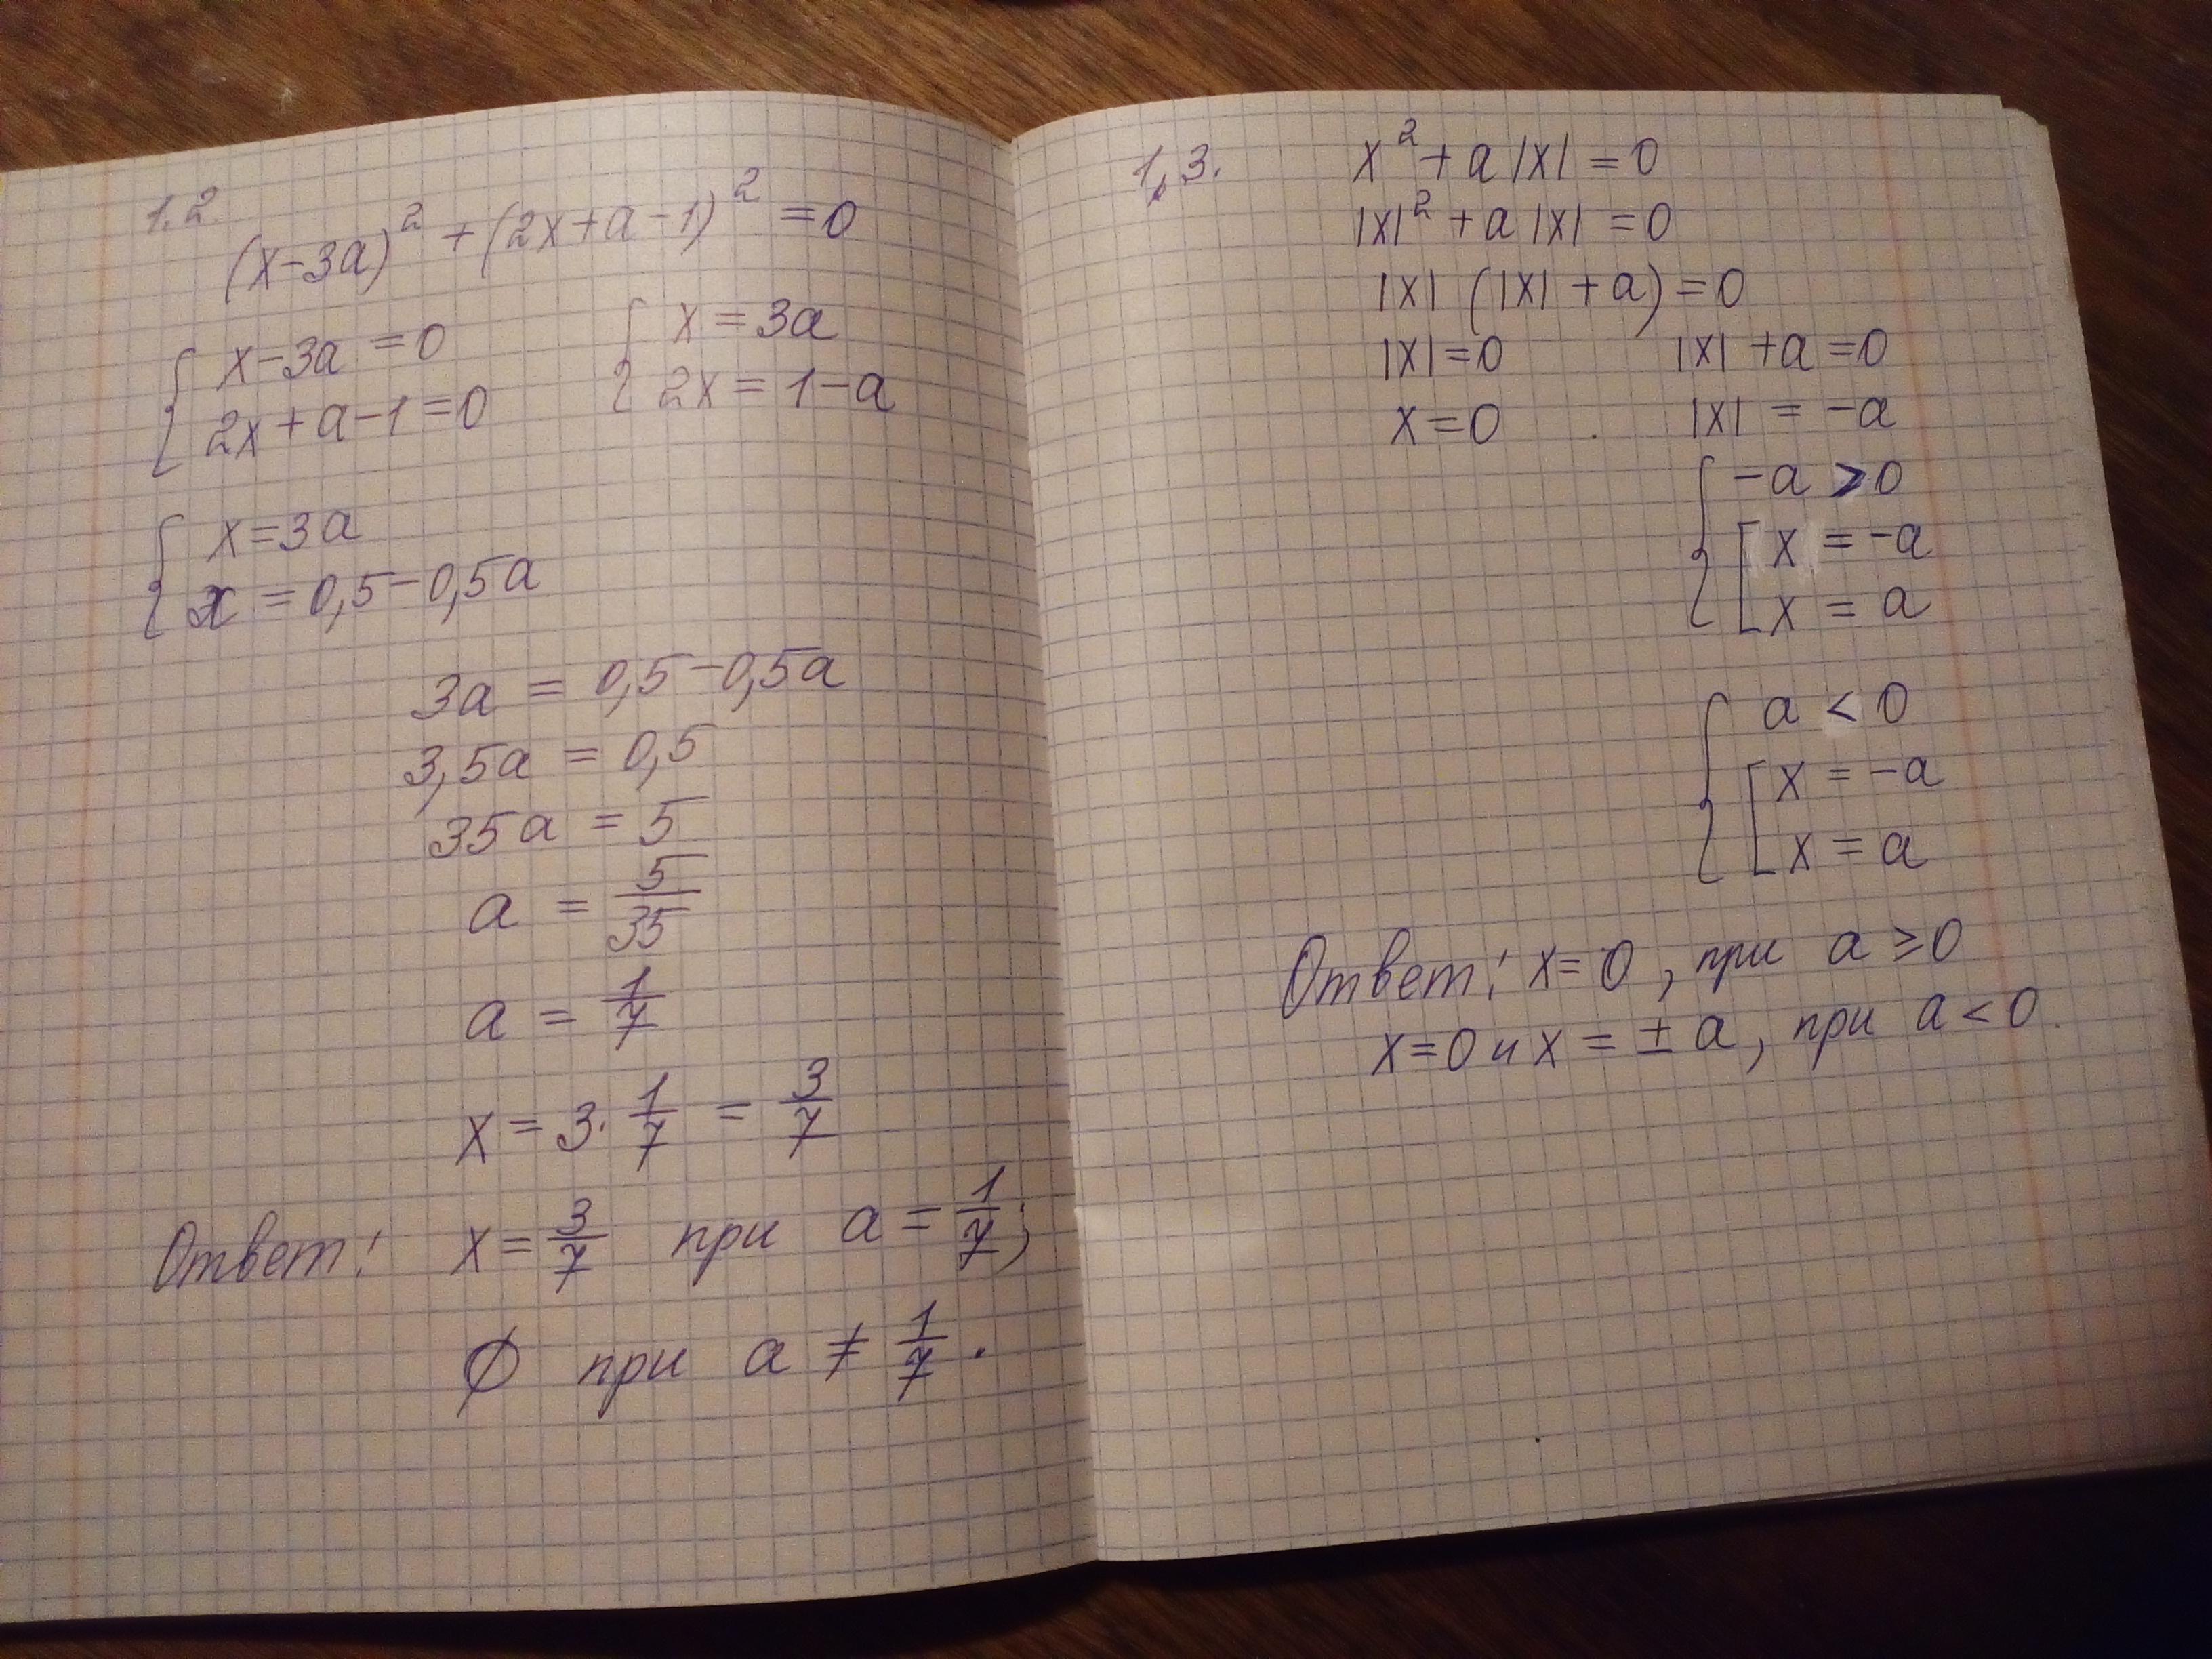 1.2
(x-3a)² + (2x+a-1)² = 0
{ x-3a = 0
2x+a-1=0
{ x = 3a
2x = 1-a
{ x=3a
x = 0,5-0,5a
3a = 0,5-0,5a
3,5a = 0,5
35a = 5
a = 5/35
a = 1/7
x = 3·1/7 = 3/7
Ответ: x = 3/7 при a = 1/7;
∅ при a ≠ 1/7.
1.3. x² + a|x| = 0
|x|² + a|x| = 0
|x| (|x| + a) = 0
|x| = 0 |x| + a = 0
x = 0 |x| = -a
{ -a > 0
[ x = -a
x = a
{ a < 0
[ x = -a
x = a
Ответ: x = 0, при a ≥ 0
x=0 и x = ± a, при a < 0.